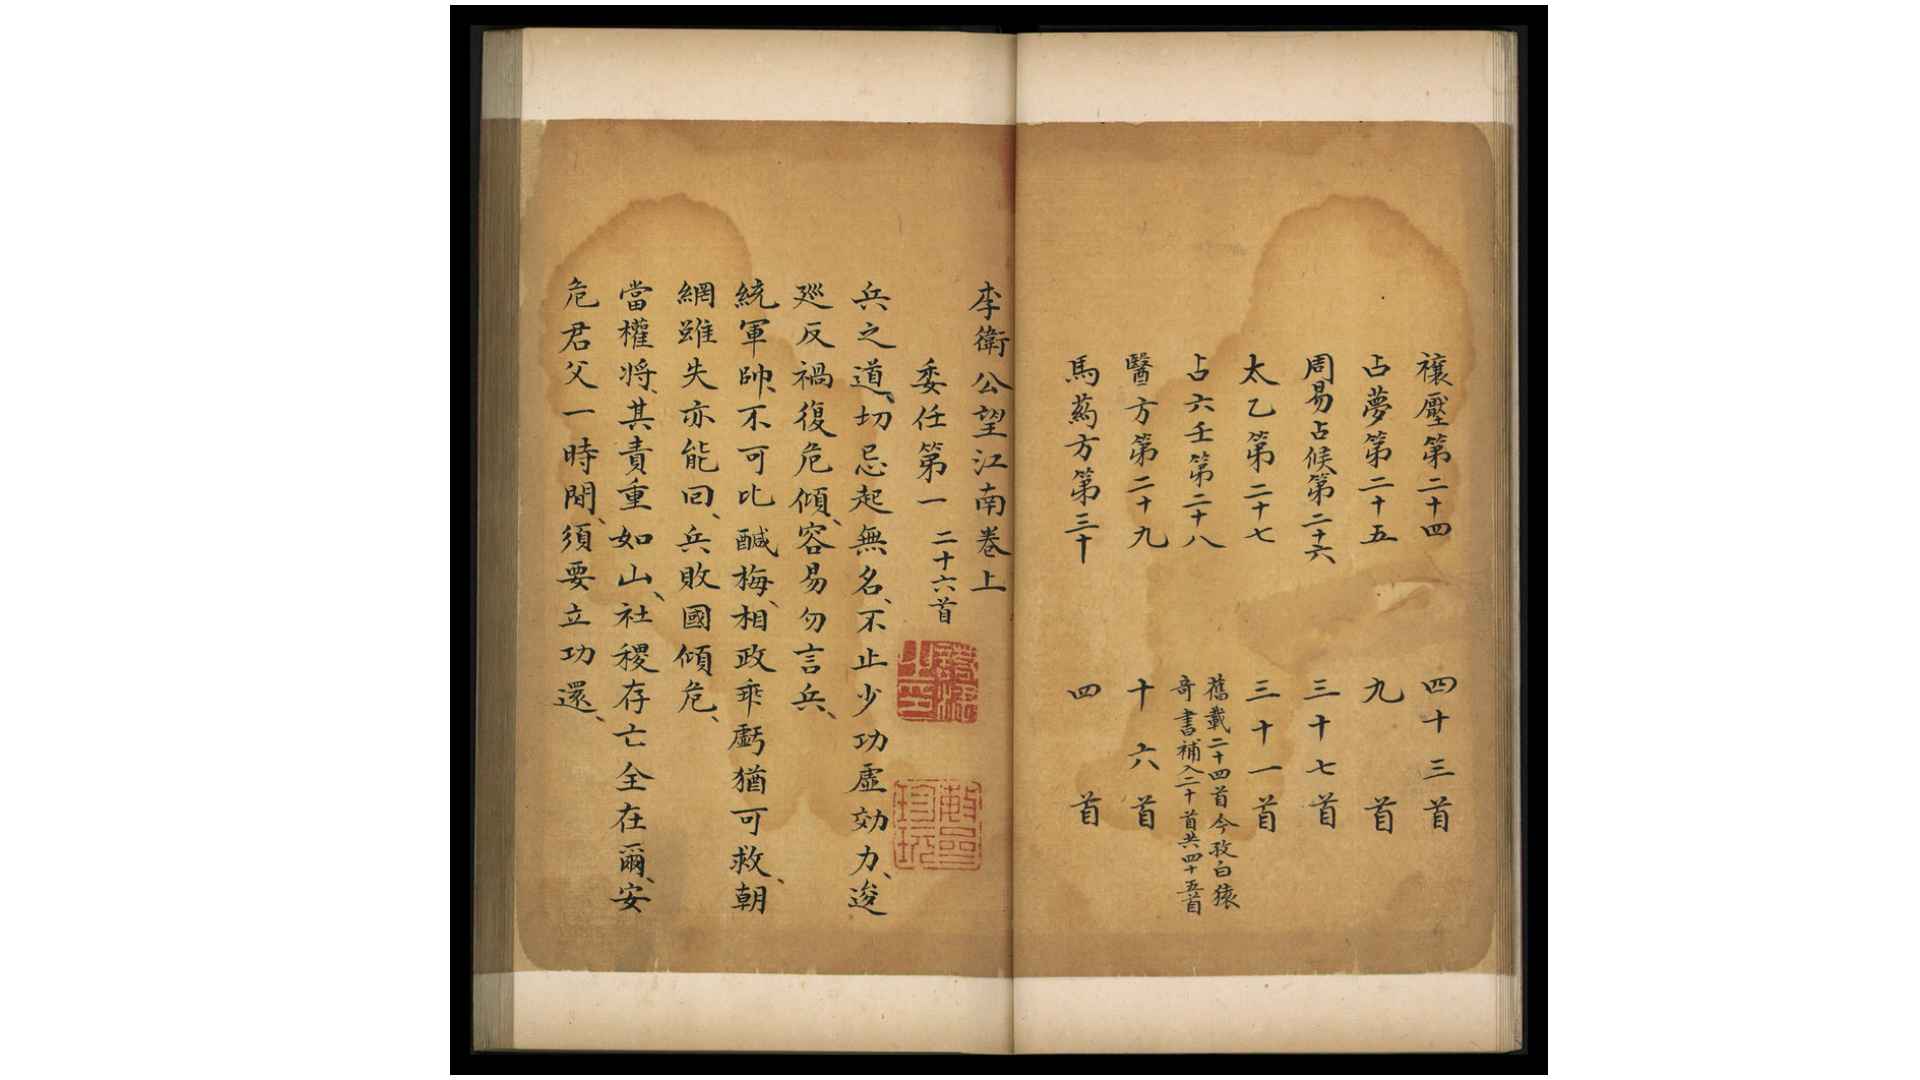 禳壓第二十四 四十三首
占夢第二十五 九首
周易占候第二十六 三十七首
太乙第二十七 三十一首
占六壬第二十八 舊載二十四首今攷白猿
奇書補入二十首共四十五首
醫方第二十九 十六首
馬葯方第三十 四首
李衛公望江南卷上
委任第一 二十六首
兵之道、切忌起無名、不止少功虛効力、逡
巡反禍復危傾、容易勿言兵、
統軍帥、不可比醎梅、相政乖虧猶可救、朝
網雖失亦能回、兵敗國傾危、
當權將、其責重如山、社稷存亡全在爾、安
危君父一時間、須要立功還、
珍玩